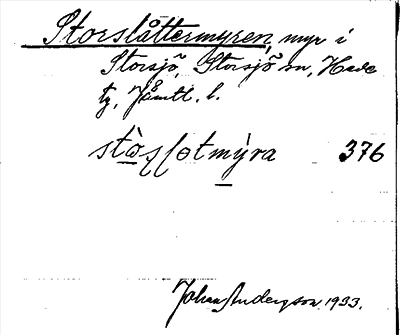 Storslåttermyren, myr i
Storsjö, Storsjö sn, Hede
tg, Jämtl. l.
376
Johan Anderson 1933.